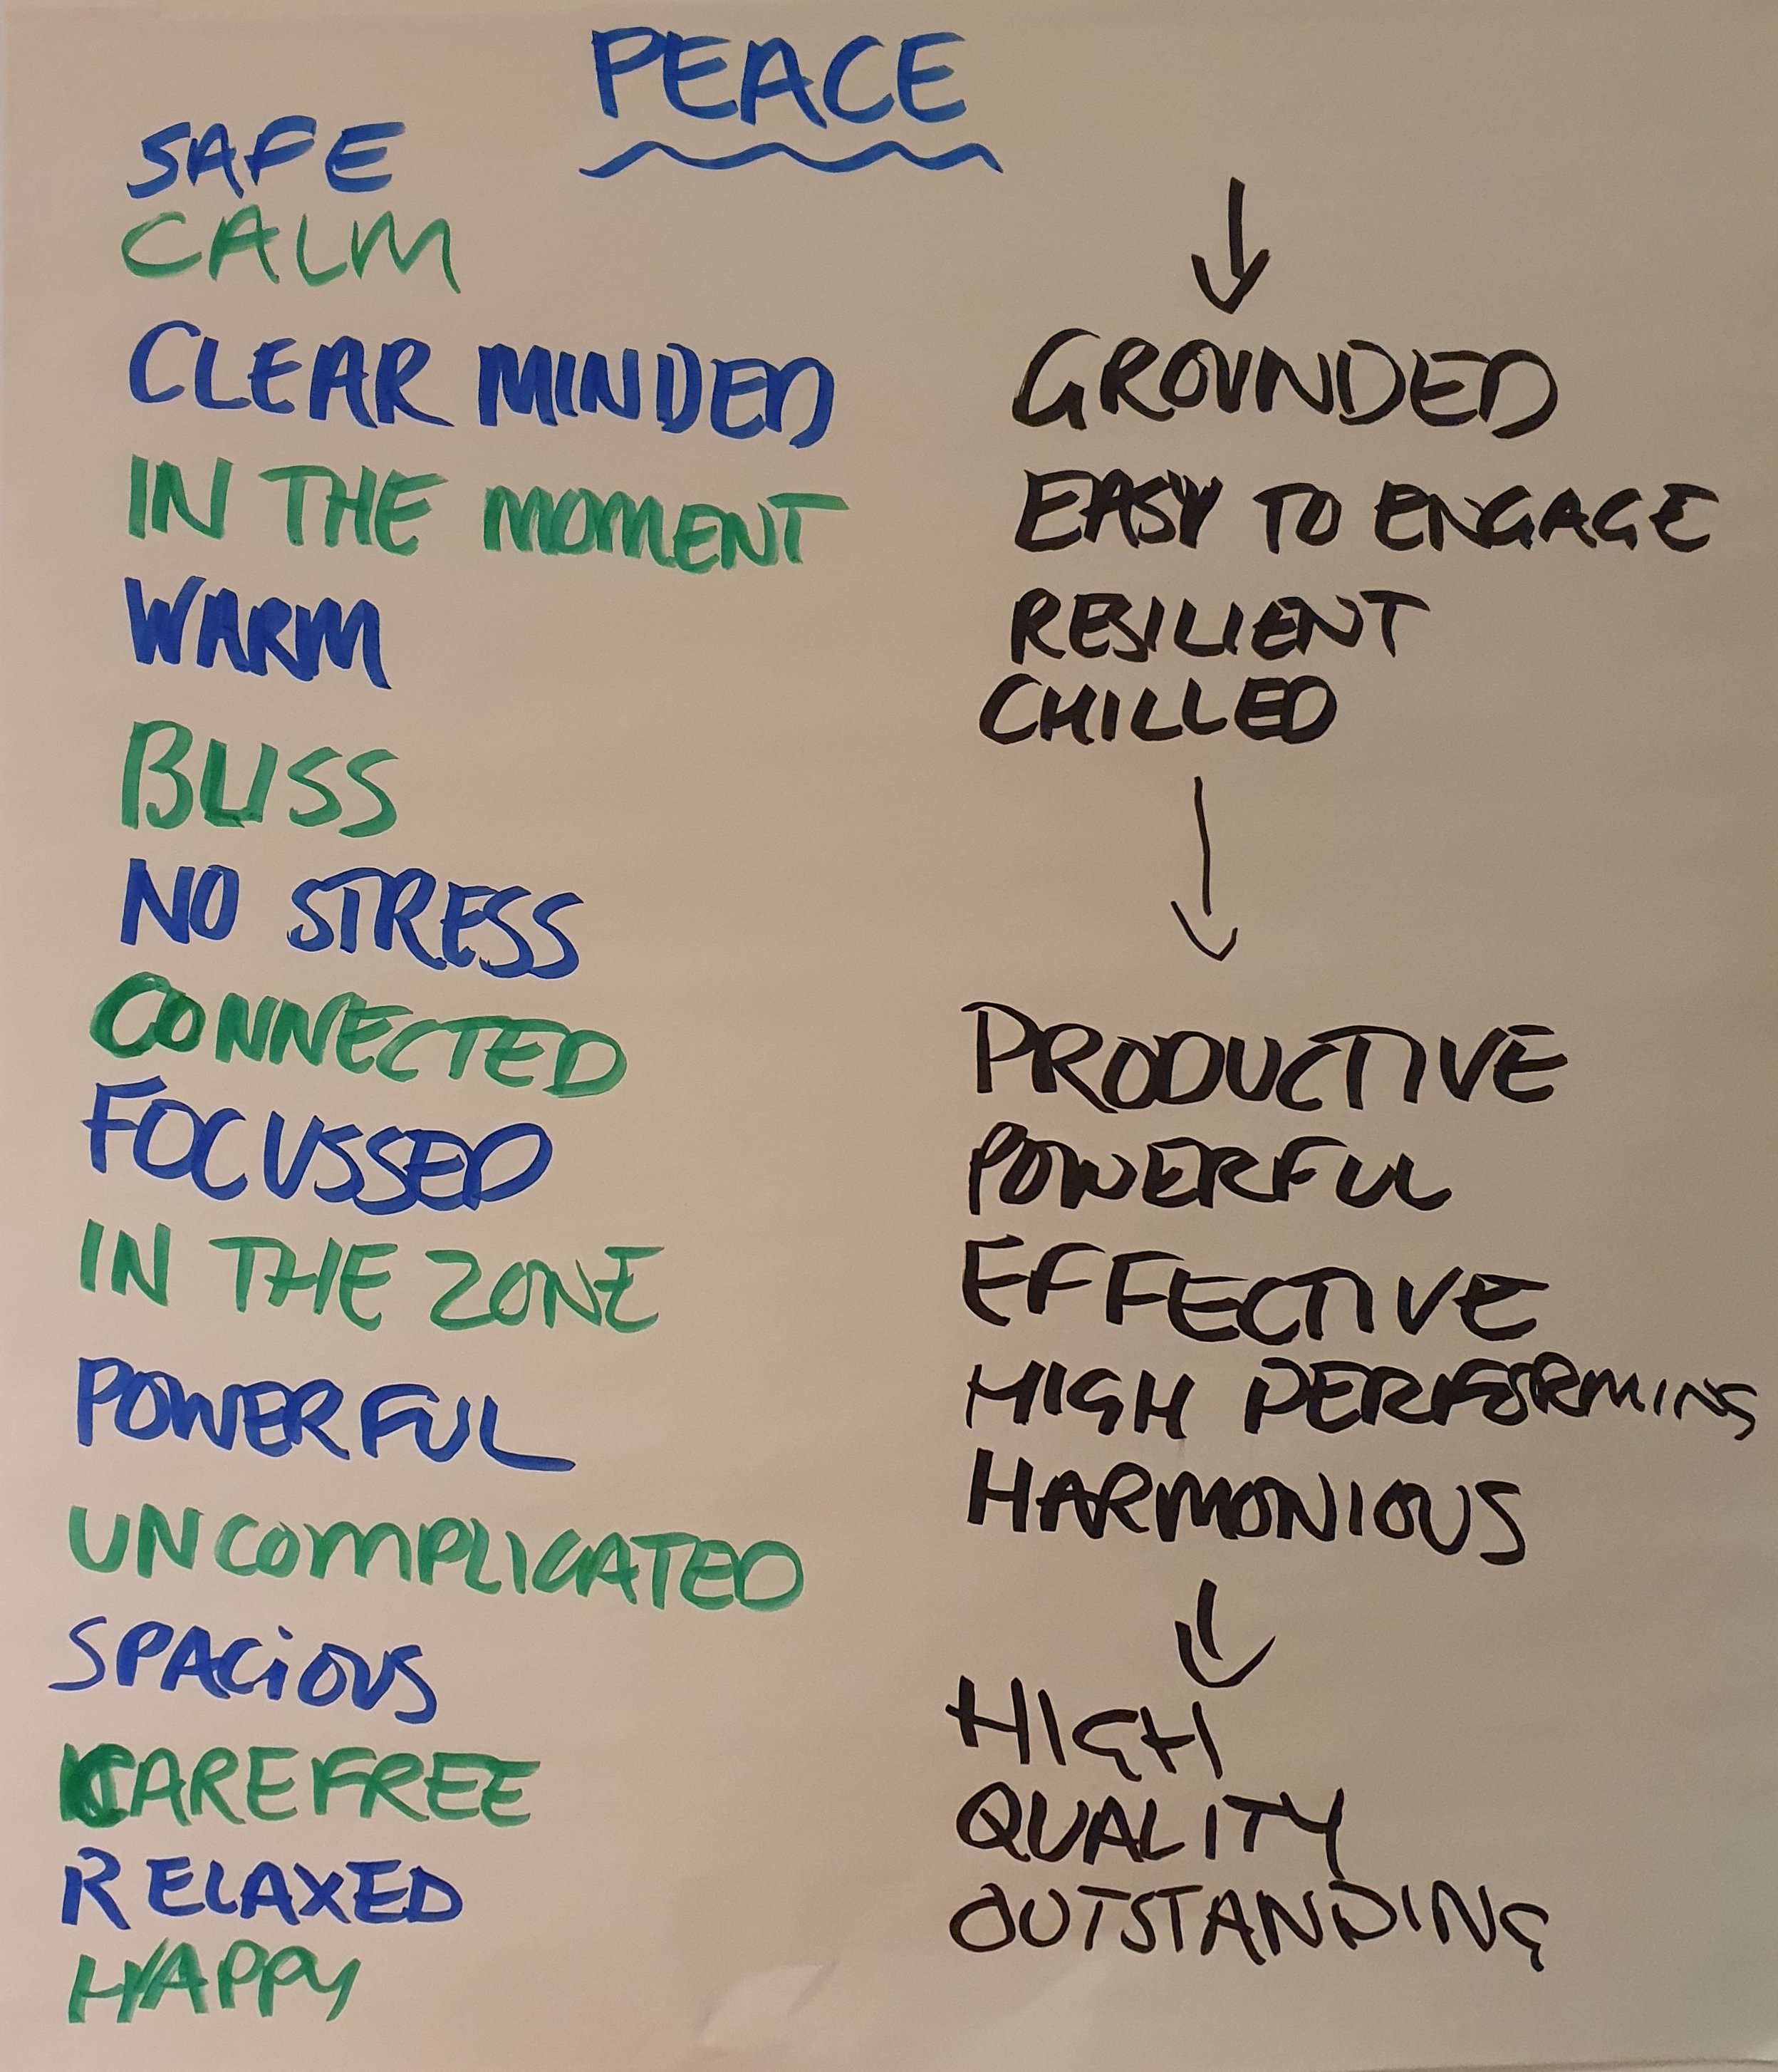 PEACE
SAFE
CALM
CLEAR MINDED
IN THE MOMENT
WARM
BLISS
NO STRESS
CONNECTED
FOCUSSED
IN THE ZONE
POWERFUL
UNCOMPLICATED
SPACiOUS
CAREFREE
RELAXED
HAPPY
GROUNDED
EASY TO ENGAGE
RESILIENT
CHILLED
PRODUCTIVE
POWERFUL
EFFECTIVE
HIGH PERFORMING
HARMONIOUS
HIGH
QUALITY
OUTSTANDING